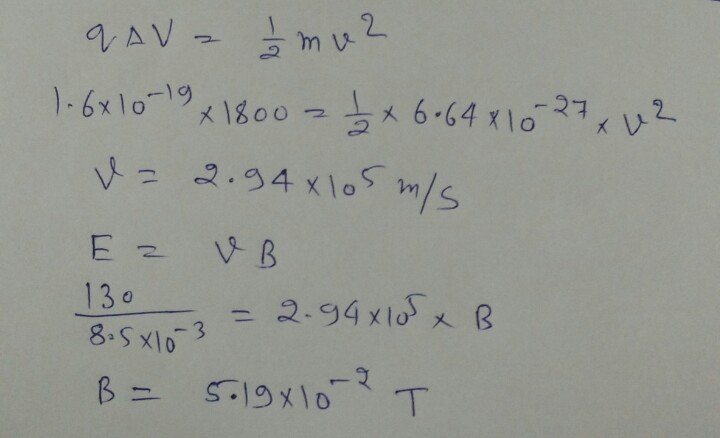 qΔV = 1/2 mv²
1.6×10⁻¹⁹ × 1800 = 1/2 × 6.64 × 10⁻²⁷ × v²
v = 2.94 × 10⁵ m/s
E = vB
130/8.5×10⁻³ = 2.94×10⁵ × B
B = 5.19×10⁻² T